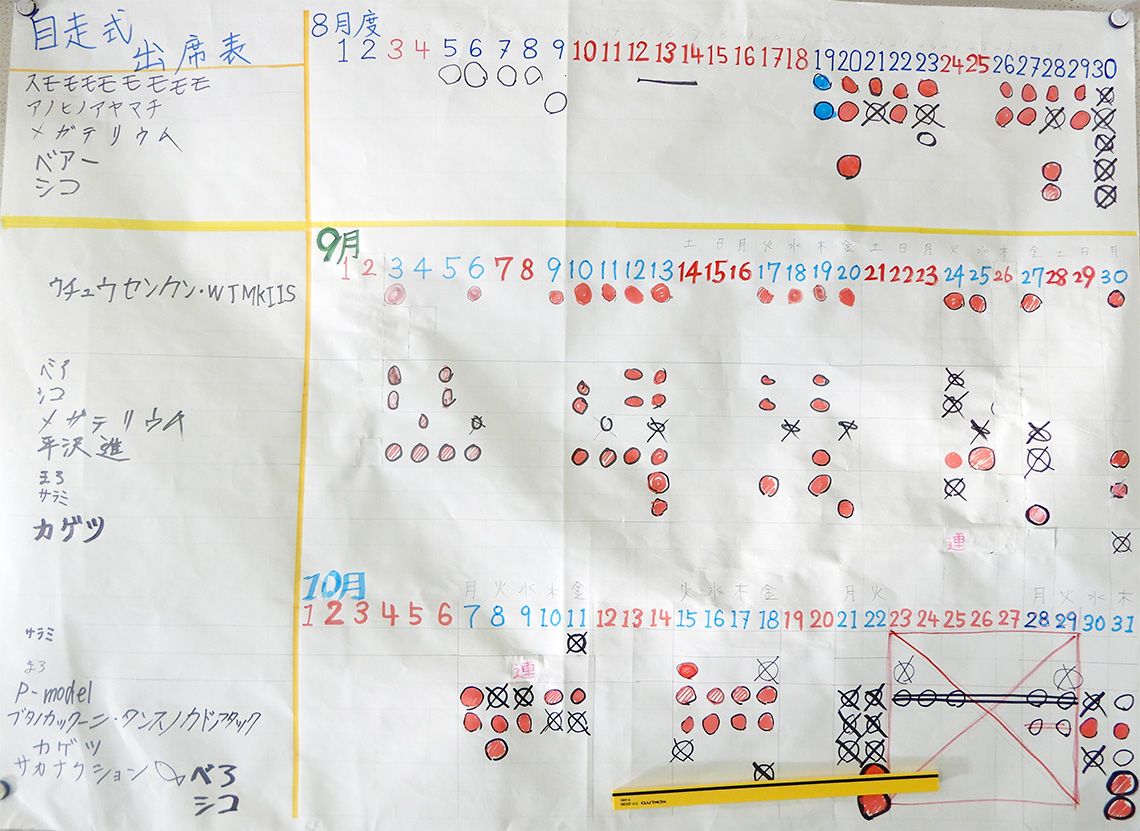 自走式
出席表
8月度
1 2 3 4 5 6 7 8 9 10 11 12 13 14 15 16 17 18 19 20 21 22 23 24 25 26 27 28 29 30
スモモモモモモモモ
アノヒノアヤマチ
メガテリウム
ベアー
シコ
9月
土 日 月 火 水 木 金 土 日 月 火 水 木 金 土 日 月
1 2 3 4 5 6 7 8 9 10 11 12 13 14 15 16 17 18 19 20 21 22 23 24 25 26 27 28 29 30
ウチュウセンカン・WTMKIIS
ベア
シコ
メガテリウム
平沢進
まろ
サラミ
カゲツ
連
10月
月 火 水 木 金 火 水 木 金 月 火 月 火 水 木
1 2 3 4 5 6 7 8 9 10 11 12 13 14 15 16 17 18 19 20 21 22 23 24 25 26 27 28 29 30 31
サラミ
まろ
連
P-model
ブタノカックーニ・タンスノカドアタック
カゲツ
サカナクション
べろ
シコ